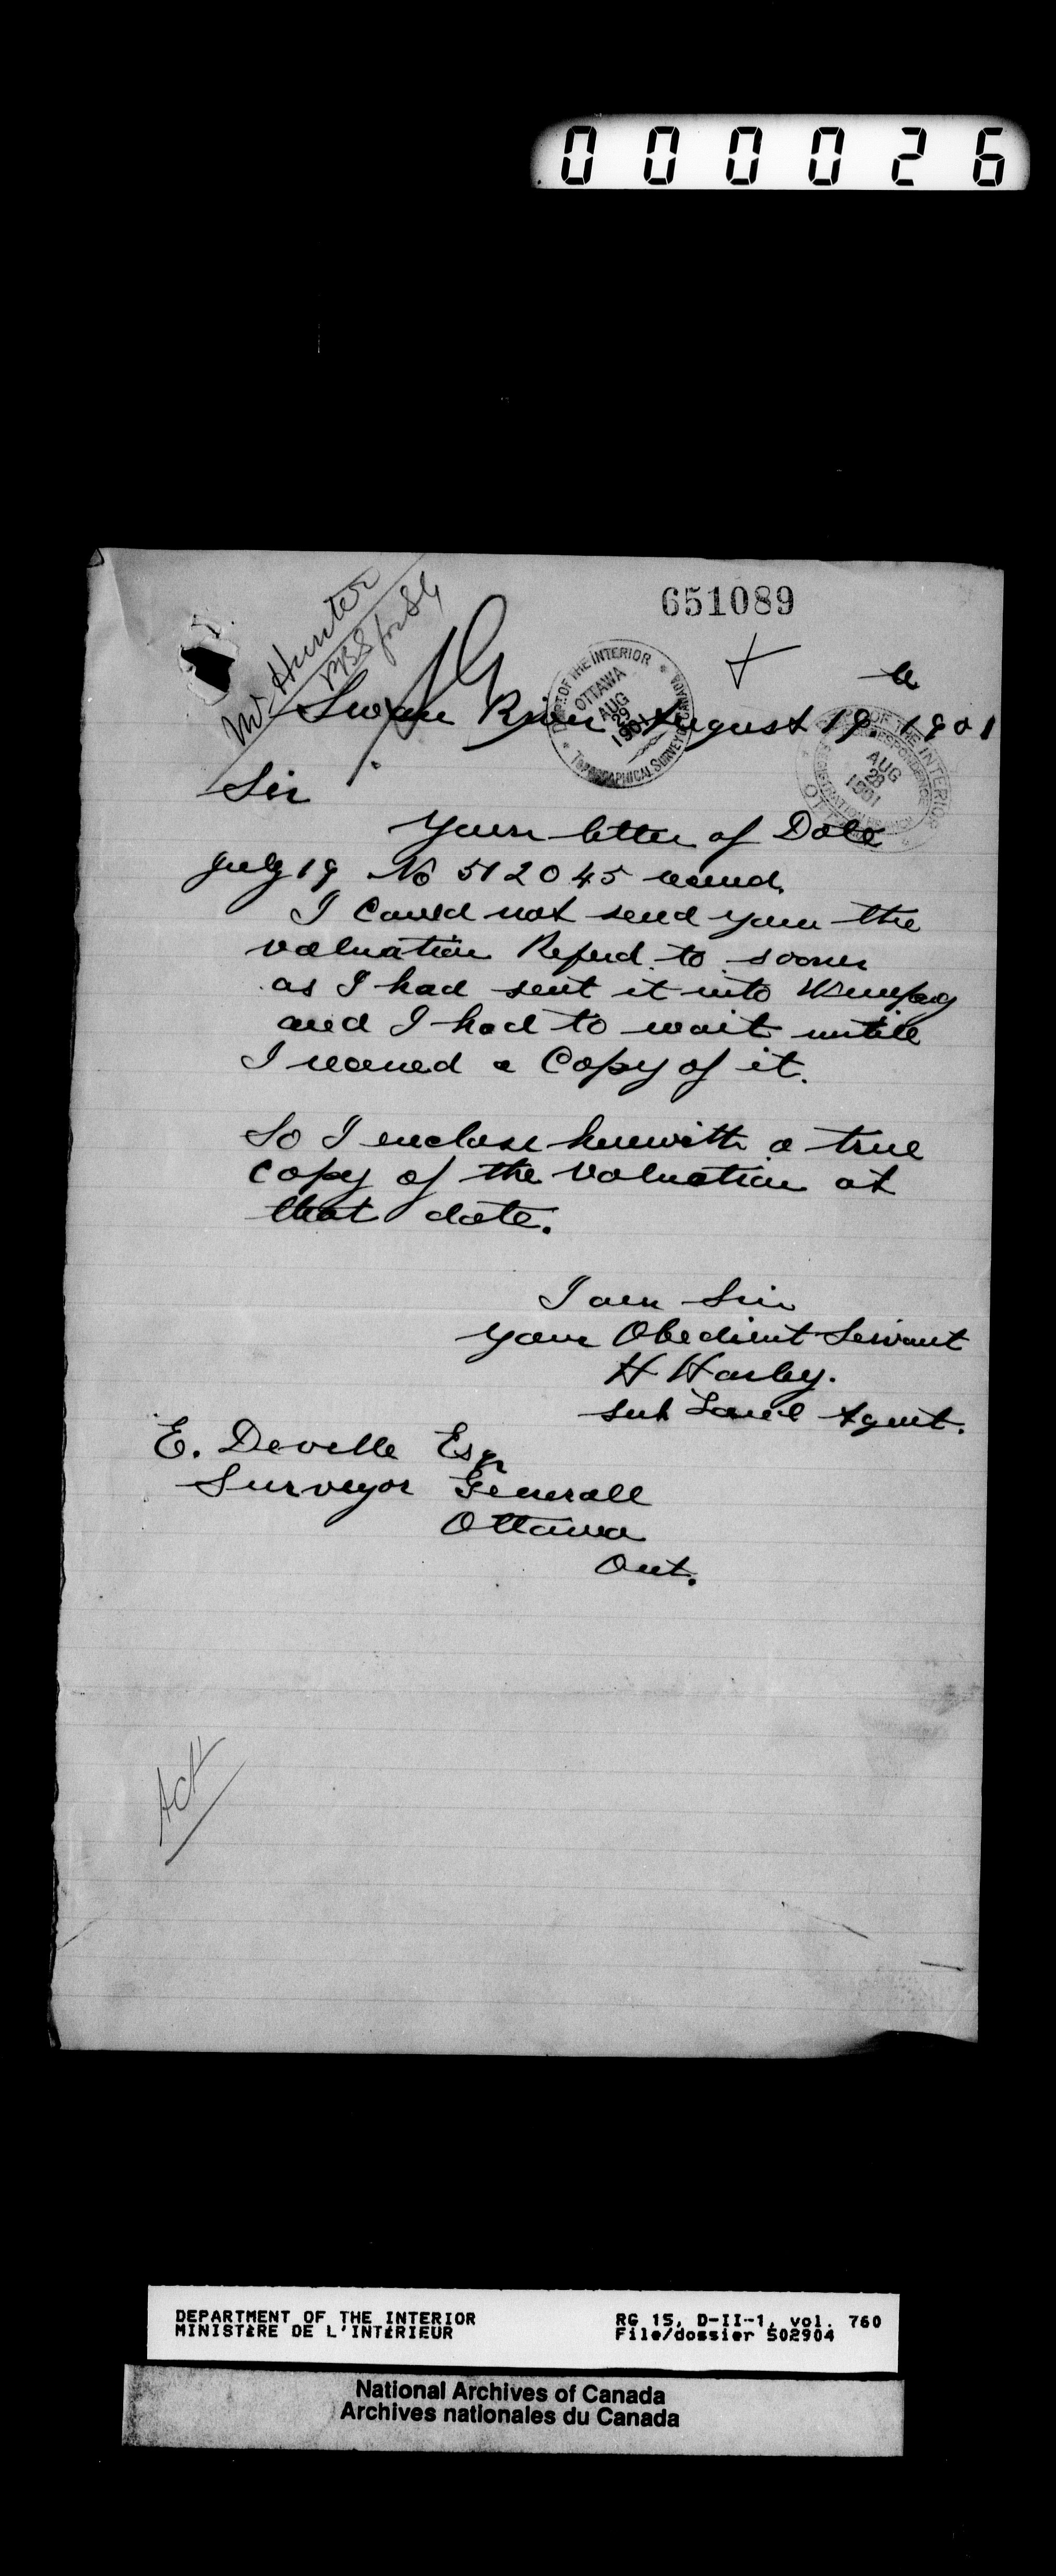 000026
651089
Mr Hunter
Swan River August 19. 1901
DEPT. OF THE INTERIOR
OTTAWA
AUG
29
1901
TOPOGRAPHICAL SURVEY OF CANADA
OF THE INTERIOR
AUG
28
1901
Sir
Your letter of Date
July 19 No 512045 received.
I Could not send you the
valuation Referd to sooner
as I had sent it into Winnipeg
and I had to wait untill
I received a Copy of it.
So I enclose herewith a true
Copy of the valuation at
that date.
I am Sir
Your Obedient Servant
H Harley.
sub Land Agent.
E. Deville Esqr
Surveyor Generall
Ottawa
Ont.
DEPARTMENT OF THE INTERIOR
MINISTÈRE DE L'INTÉRIEUR
RG 15, D-II-1, vol. 760
File/dossier 502904
National Archives of Canada
Archives nationales du Canada